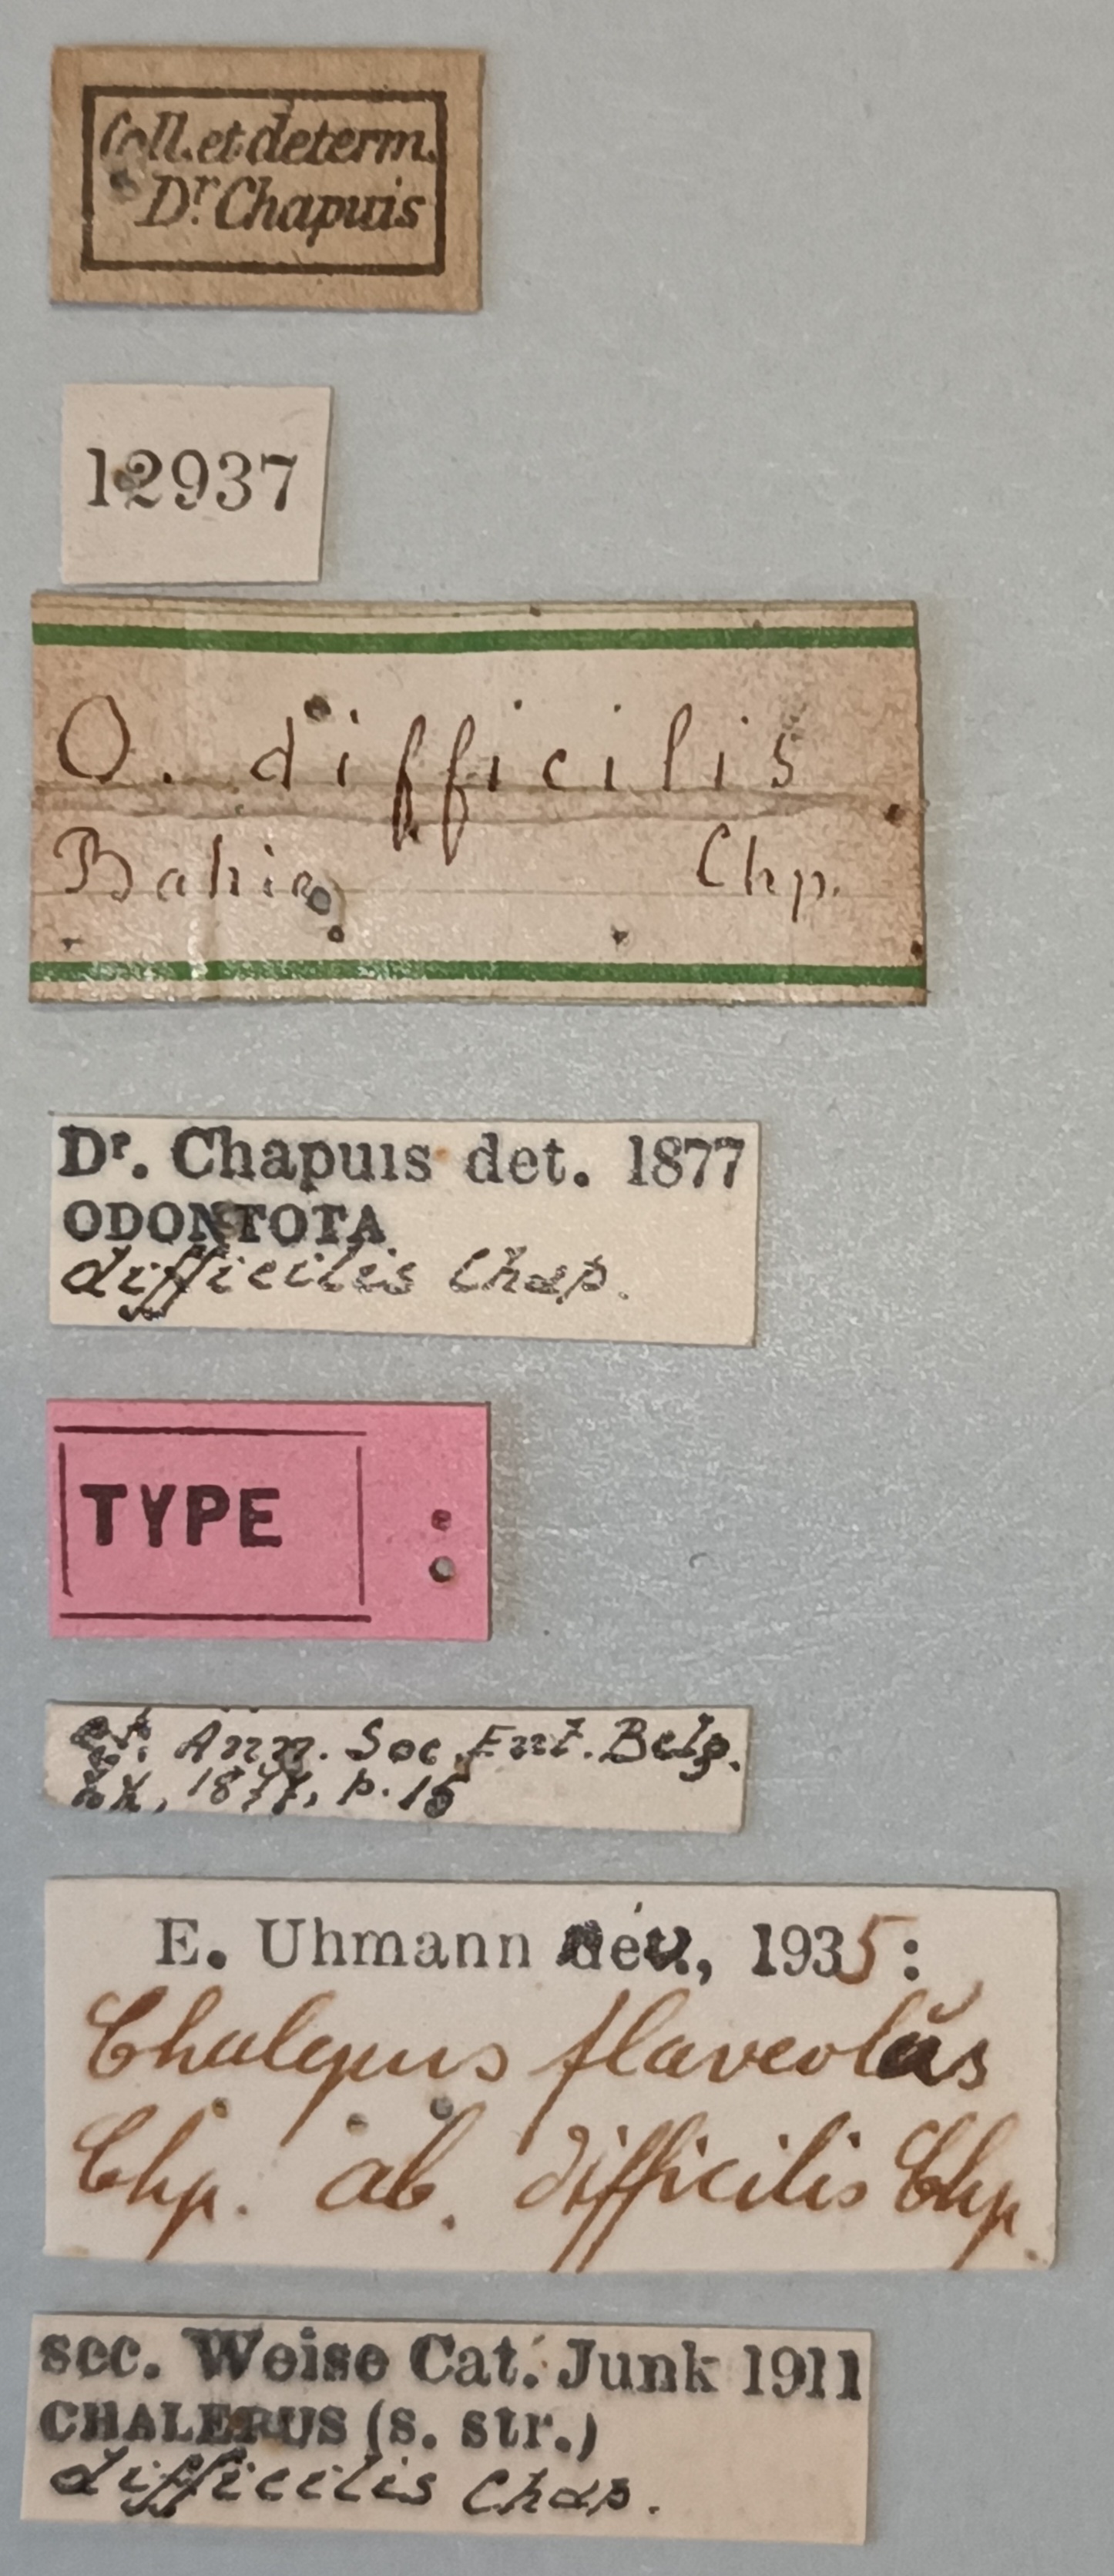 Coll. et determ.
Dr. Chapuis
12937
O. difficilis
Bahia Chp.
Dr. Chapuis det. 1877
ODONTOTA
difficilis Chap.
TYPE
cf. Ann. Soc. Ent. Belg.
XX, 1877, p. 15
E. Uhmann rev., 1935:
Chalepus flaveolus
Chp. ab. difficilis Chp.
sec. Weise Cat. Junk 1911
CHALEPUS (s. str.)
difficilis Chap.